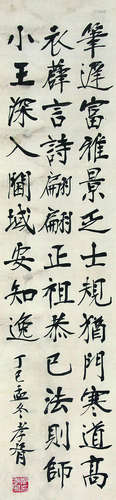 筆遲富雅景乏士規猶門寒道高
衣薜言詩翩翩正祖恭已法則師
小王深入閫域安知逸
丁巳孟冬孝胥